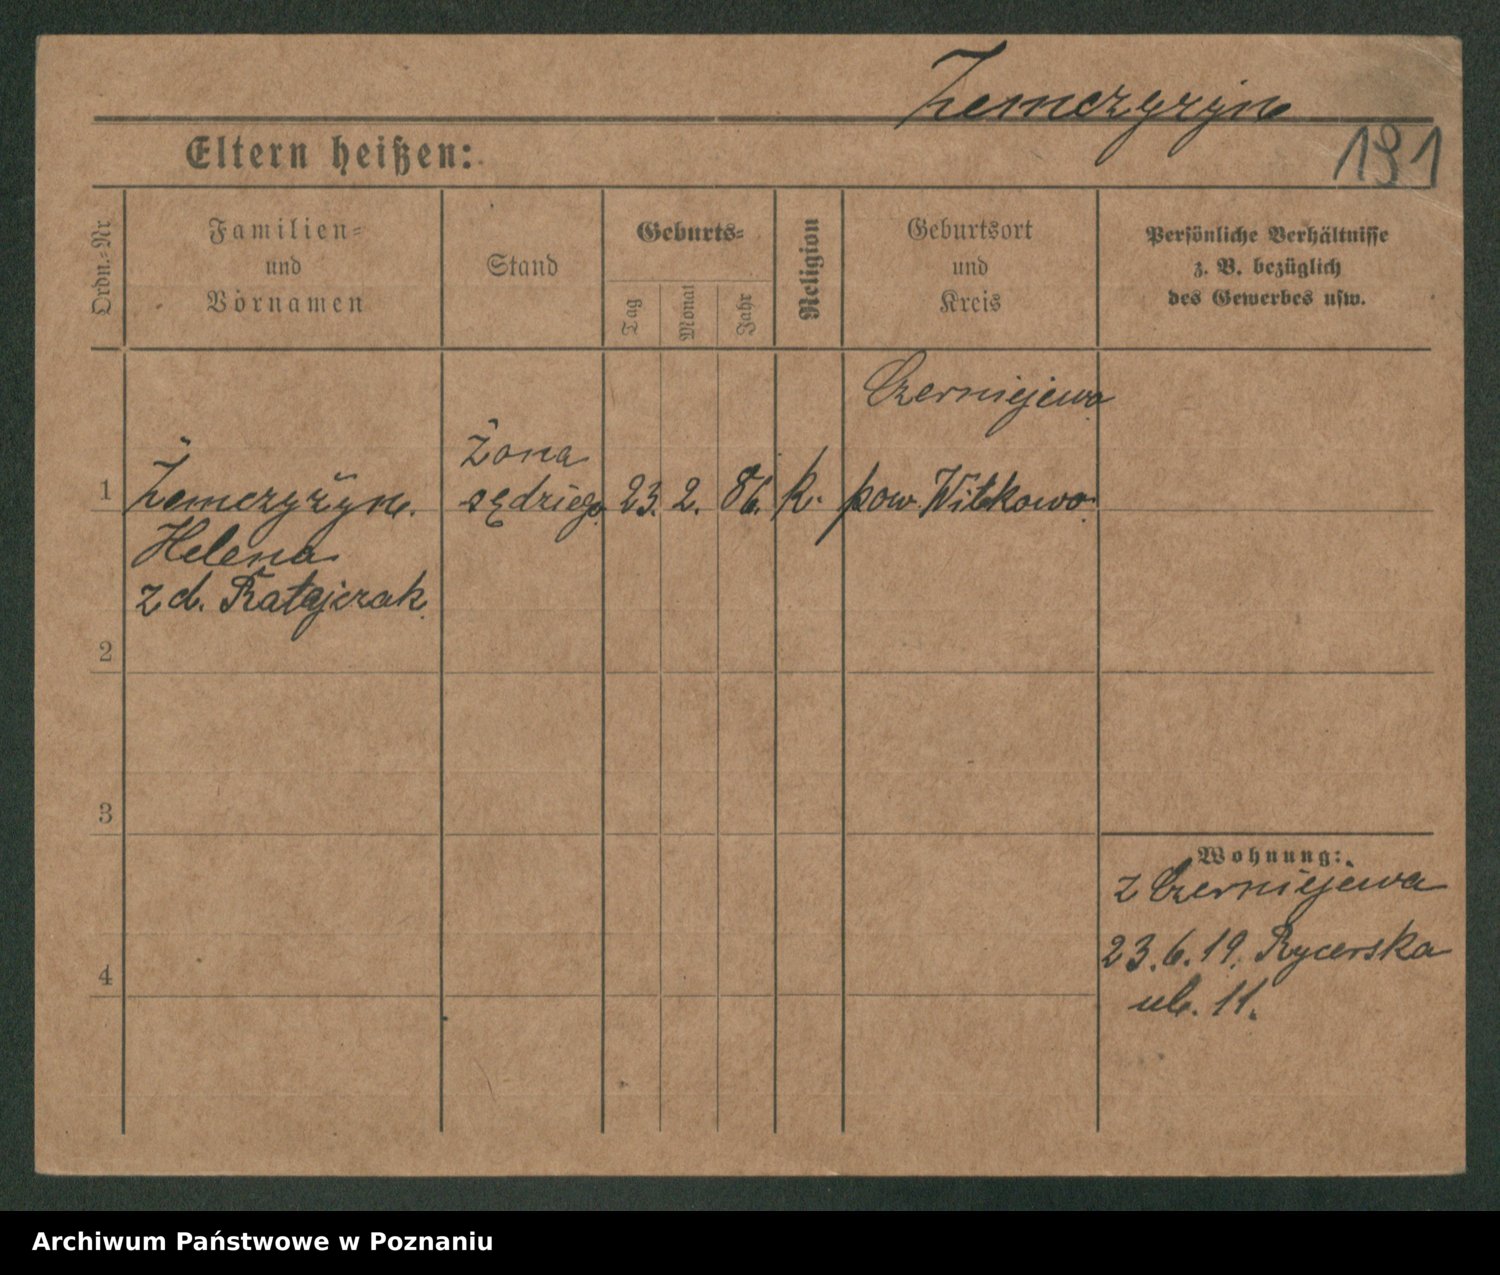 Żemczyżyn
191
Eltern heißen:
Ordn.-Nr
Familien-
und
Vornamen
Stand
Geburts-
Tag
Monat
Jahr
Religion
Geburtsort
und
Kreis
Persönliche Verhältnisse
z. B. bezüglich
des Gewerbes usw.
1
Żemczyżyn.
Helena
z d. Ratajczak.
żona
sędziego
23. 2. 86.
k.
Czerniejewo
pow. Witkowo.
2
3
4
Wohnung:
z Czerniejewa
23.6.19. Rycerska
ul. 11.
Archiwum Państwowe w Poznaniu